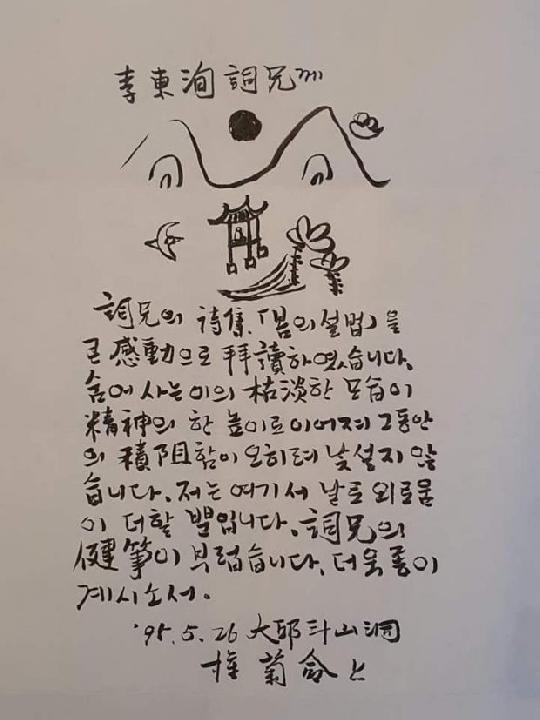 李東洵 詞兄께
詞兄의 詩集, 「봄의 설법」을
큰 感動으로 拜讀하였습니다.
사는 이의 枯淡한 모습이
精神의 한 높이로 이어져 그동안
의 積阻함이 오히려 낯설지 않
습니다. 저는 여기서 날로 외로움
이 더할 뿐입니다. 詞兄의
健筆이 부럽습니다. 더욱 좋이
계시소서.
'95.5.26 大邱 斗山洞
権菊命 上